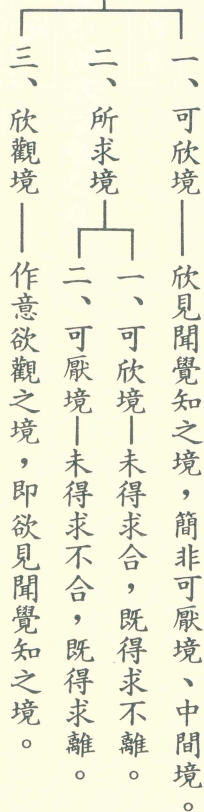 一、可欣境——欣見聞覺知之境，簡非可厭境、中間境。
二、所求境
一、可欣境—未得求合，既得求不離。
二、可厭境—未得求不合，既得求離。
三、欣觀境——作意欲觀之境，即欲見聞覺知之境。